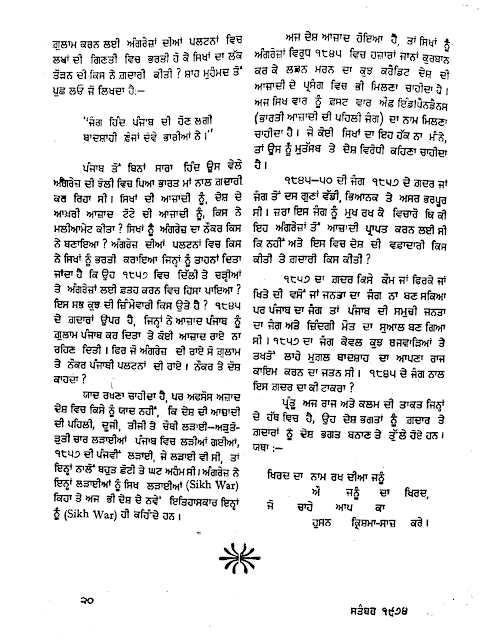 ਗ਼ੁਲਾਮ ਕਰਨ ਲਈ ਅੰਗਰੇਜ਼ਾਂ ਦੀਆਂ ਪਲਟਨਾਂ ਵਿਚ
ਲਖਾਂ ਦੀ ਗਿਣਤੀ ਵਿਚ ਭਰਤੀ ਹੋ ਕੇ ਸਿਖਾਂ ਦਾ ਲੱਕ
ਤੋੜਨ ਦੀ ਕਿਸ ਨੇ ਗ਼ਦਾਰੀ ਕੀਤੀ ? ਸ਼ਾਹ ਮੁਹੰਮਦ ਤੋਂ
ਪੁਛ ਲਓ ਜੋ ਲਿਖਦਾ ਹੈ:—
"ਜੰਗ ਹਿੰਦ ਪੰਜਾਬ ਦੀ ਹੋਣ ਲਗੀ
ਬਾਦਸ਼ਾਹੀ ਫ਼ੌਜਾਂ ਦੋਵੇਂ ਭਾਰੀਆਂ ਨੇ।"
ਪੰਜਾਬ ਤੋਂ ਬਿਨਾਂ ਸਾਰਾ ਹਿੰਦ ਉਸ ਵੇਲੇ
ਅੰਗਰੇਜ਼ ਦੀ ਝੋਲੀ ਵਿਚ ਪਿਆ ਭਾਰਤ ਮਾਂ ਨਾਲ ਗ਼ਦਾਰੀ
ਕਰ ਰਿਹਾ ਸੀ। ਸਿਖਾਂ ਦੀ ਆਜ਼ਾਦੀ ਨੂੰ, ਦੇਸ਼ ਦੇ
ਆਖ਼ਰੀ ਆਜ਼ਾਦ ਟੋਟੇ ਦੀ ਆਜ਼ਾਦੀ ਨੂੰ, ਕਿਸ ਨੇ
ਮਲੀਆਮੇਟ ਕੀਤਾ ? ਸਿਖਾਂ ਨੂੰ ਅੰਗਰੇਜ਼ ਦਾ ਨੌਕਰ ਕਿਸ
ਨੇ ਬਣਾਇਆ ? ਅੰਗਰੇਜ਼ ਦੀਆਂ ਪਲਟਨਾਂ ਵਿਚ ਕਿਸ
ਨੇ ਸਿਖਾਂ ਨੂੰ ਭਰਤੀ ਕਰਾਇਆ ਜਿਨ੍ਹਾਂ ਨੂੰ ਤਾਹਨਾ ਦਿਤਾ
ਜਾਂਦਾ ਹੈ ਕਿ ਉਹ ੧੮੫੭ ਵਿਚ ਦਿੱਲੀ ਤੇ ਚੜ੍ਹੀਆਂ
ਤੇ ਅੰਗਰੇਜ਼ਾਂ ਲਈ ਫ਼ਤਹ ਕਰਨ ਵਿਚ ਹਿਸਾ ਪਾਇਆ ?
ਇਸ ਸਭ ਕੁਝ ਦੀ ਜ਼ਿੰਮੇਵਾਰੀ ਕਿਸ ਉਤੇ ਹੈ ? ੧੮੪੫
ਦੇ ਗ਼ਦਾਰਾਂ ਉਪਰ ਹੈ, ਜਿਨ੍ਹਾਂ ਨੇ ਆਜ਼ਾਦ ਪੰਜਾਬ ਨੂੰ
ਗ਼ੁਲਾਮ ਪੰਜਾਬ ਕਰ ਦਿਤਾ ਤੇ ਕੋਈ ਆਜ਼ਾਦ ਰਾਏ ਨਾ
ਰਹਿਣ ਦਿਤੀ। ਫਿਰ ਜੋ ਅੰਗਰੇਜ਼ ਦੀ ਰਾਏ ਸੋ ਗ਼ੁਲਾਮ
ਤੇ ਨੌਕਰ ਪੰਜਾਬੀ ਪਲਟਨਾਂ ਦੀ ਰਾਏ। ਨੌਕਰ ਤੇ ਦੋਸ਼
ਕਾਹਦਾ ?
ਯਾਦ ਰਖਣਾ ਚਾਹੀਦਾ ਹੈ, ਪਰ ਅਫਸੋਸ ਅਜ਼ਾਦ
ਦੇਸ਼ ਵਿਚ ਕਿਸੇ ਨੂੰ ਯਾਦ ਨਹੀਂ, ਕਿ ਦੇਸ਼ ਦੀ ਆਜ਼ਾਦੀ
ਦੀ ਪਹਿਲੀ, ਦੂਜੀ, ਤੀਜੀ ਤੇ ਚੌਥੀ ਲੜਾਈ—ਅੜੁਤੋ-
ੜੁਤੀ ਚਾਰ ਲੜਾਈਆਂ ਪੰਜਾਬ ਵਿਚ ਲੜੀਆਂ ਗਈਆਂ,
੧੮੫੭ ਦੀ ਪੰਜਵੀਂ ਲੜਾਈ, ਜੇ ਲੜਾਈ ਵੀ ਸੀ, ਤਾਂ
ਇਨ੍ਹਾਂ ਨਾਲੋਂ ਬਹੁਤ ਛੋਟੀ ਤੇ ਘਟ ਅਹੰਮ ਸੀ। ਅੰਗਰੇਜ਼ ਨੇ
ਇਨ੍ਹਾਂ ਲੜਾਈਆਂ ਨੂੰ ਸਿਖ ਲੜਾਈਆਂ (Sikh War)
ਕਿਹਾ ਤੇ ਅਜ ਭੀ ਦੇਸ਼ ਦੇ ਨਵੇਂ ਇਤਿਹਾਸਕਾਰ ਇਨ੍ਹਾਂ
ਨੂੰ (Sikh War) ਹੀ ਕਹਿੰਦੇ ਹਨ।
ਅਜ ਦੇਸ਼ ਆਜ਼ਾਦ ਹੋਇਆ ਹੈ, ਤਾਂ ਸਿਖਾਂ ਨੂੰ
ਅੰਗਰੇਜ਼ਾਂ ਵਿਰੁਧ ੧੮੪੫ ਵਿਚ ਹਜ਼ਾਰਾਂ ਜਾਨਾਂ ਕੁਰਬਾਨ
ਕਰ ਕੇ ਲੜਨ ਮਰਨ ਦਾ ਕੁਝ ਕਰੈਡਿਟ ਦੇਸ਼ ਦੀ
ਆਜ਼ਾਦੀ ਦੇ ਪ੍ਰਸੰਗ ਵਿਚ ਭੀ ਮਿਲਣਾ ਚਾਹੀਦਾ ਹੈ।
ਅਜ ਸਿਖ ਵਾਰ ਨੂੰ ਫ਼ਸਟ ਵਾਰ ਔਫ਼ ਇੰਡੀਪੈਨਡੈਨਸ
(ਭਾਰਤੀ ਆਜ਼ਾਦੀ ਦੀ ਪਹਿਲੀ ਜੰਗ) ਦਾ ਨਾਮ ਮਿਲਣਾ
ਚਾਹੀਦਾ ਹੈ। ਜੇ ਕੋਈ ਸਿਖਾਂ ਦਾ ਇਹ ਹੱਕ ਨਾ ਮੰਨੇ,
ਤਾਂ ਉਸ ਨੂੰ ਮੁਤੱਸਬ ਤੇ ਦੇਸ਼ ਵਿਰੋਧੀ ਕਹਿਣਾ ਚਾਹੀਦਾ
ਹੈ।
੧੮੪੫—੫੦ ਦੀ ਜੰਗ ੧੮੫੭ ਦੇ ਗ਼ਦਰ ਜਾਂ
ਜੰਗ ਤੋਂ ਦਸ ਗੁਣਾਂ ਵੱਡੀ, ਭਿਆਨਕ ਤੇ ਅਸਰ ਭਰਪੂਰ
ਸੀ। ਜ਼ਰਾ ਇਸ ਜੰਗ ਨੂੰ ਮੁਖ ਰਖ ਕੇ ਵਿਚਾਰੋ ਬਿ ਕੀ
ਇਹ ਅੰਗਰੇਜ਼ਾਂ ਤੋਂ ਆਜ਼ਾਦੀ ਪ੍ਰਾਪਤ ਕਰਨ ਲਈ ਸੀ
ਕਿ ਨਹੀਂ ਅਤੇ ਇਸ ਵਿਚ ਦੇਸ਼ ਦੀ ਵਫਾਦਾਰੀ ਕਿਸ
ਕੀਤੀ ਤੇ ਗ਼ਦਾਰੀ ਕਿਸ ਕੀਤੀ ?
੧੮੫੭ ਦਾ ਗ਼ਦਰ ਕਿਸੇ ਕੌਮ ਜਾਂ ਫਿਰਕੇ ਜਾਂ
ਖਿਤੇ ਦੀ ਵਸੋਂ ਜਾਂ ਜਨਤਾ ਦਾ ਜੰਗ ਨਾ ਬਣ ਸਕਿਆ
ਪਰ ਪੰਜਾਬ ਦਾ ਜੰਗ ਤਾਂ ਪੰਜਾਬ ਦੀ ਸਮੁਚੀ ਜਨਤਾ
ਦਾ ਜੰਗ ਅਤੇ ਜ਼ਿੰਦਗੀ ਮੌਤ ਦਾ ਸੁਆਲ ਬਣ ਗਿਆ
ਸੀ। ੧੮੫੭ ਦਾ ਜੰਗ ਕੇਵਲ ਕੁਝ ਰਜਵਾੜਿਆਂ ਤੇ
ਤਖਤੋਂ ਲਾਹੇ ਮੁਗ਼ਲ ਬਾਦਸ਼ਾਹ ਦਾ ਆਪਣਾ ਰਾਜ
ਕਾਇਮ ਕਰਨ ਦਾ ਜਤਨ ਸੀ। ੧੮੪੫ ਦੇ ਜੰਗ ਨਾਲ
ਇਸ ਗ਼ਦਰ ਦਾ ਕੀ ਟਾਕਰਾ ?
ਪ੍ਰੰਤੂ ਅਜ ਰਾਜ ਅਤੇ ਕਲਮ ਦੀ ਤਾਕਤ ਜਿਨ੍ਹਾਂ
ਦੇ ਹੱਥ ਵਿਚ ਹੈ, ਉਹ ਦੇਸ਼ ਭਗਤਾਂ ਨੂੰ ਗ਼ਦਾਰ ਤੇ
ਗ਼ਦਾਰਾਂ ਨੂੰ ਦੇਸ਼ ਭਗਤ ਬਨਾਣ ਤੇ ਤੁੱਲੇ ਹੋਏ ਹਨ।
ਯਥਾ :—
ਖਿਰਦ ਦਾ ਨਾਮ ਰਖ ਦੀਆ ਜਨੂੰ
ਔ ਜਨੂੰ ਦਾ ਖਿਰਦ,
ਜੋ ਚਾਹੇ ਆਪ ਕਾ
ਹੁਸਨ ਕ੍ਰਿਸ਼ਮਾ-ਸਾਜ਼ ਕਰੇ।
੨੦
ਸਤੰਬਰ ੧੯੭੪